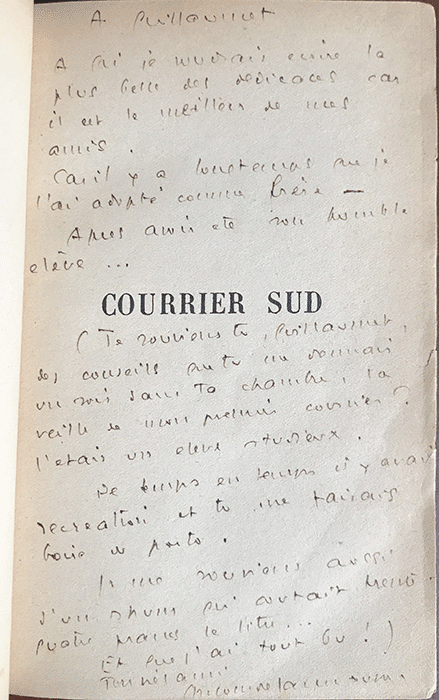 A Guillaumet
A qui je voudrais écrire la
plus belle des dédicaces car
il est le meilleur de mes
amis.
Car il y a longtemps que je
l'ai adopté comme frère —
Après avoir été son humble
élève ...
COURRIER SUD
(Te souviens tu, Guillaumet,
des conseils que tu me donnais
un soir dans ta chambre, la
veille de mon premier courrier ?
J'étais un élève studieux.
De temps en temps il y avait
récréation et tu me faisais
boire du porto.
Je me souviens aussi
d'un rhum qui coûtait trente
quatre francs le litre...
Et que j'ai tout bu !)
Ton ami